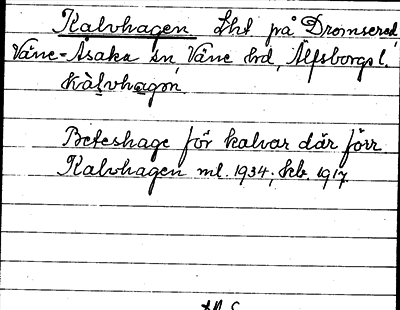 Kalvhagen Lht på Dromsered,
Väne-Åsaka sn, Väne hd, Älfsborgs l.
kàlvhagɔn.
Beteshage för kalvar där förr.
Kalvhagen ml. 1934; kb. 1917.